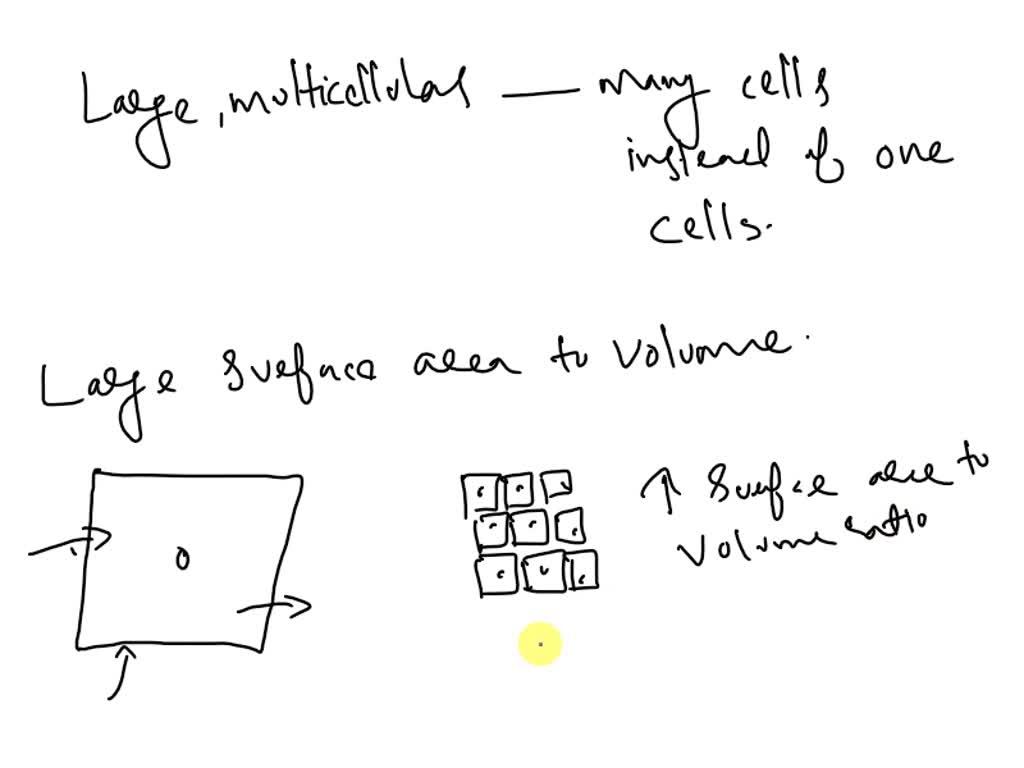 Large, multicellular — many cells
instead of one
cells.
Large surface area to volume.
↑ Surface area to
volume ratio